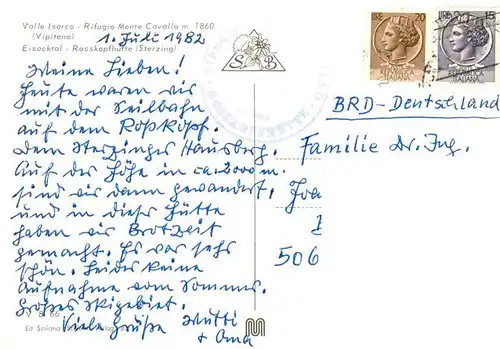 Valle Isarco - Rifugio Monte Cavallo m. 1860
(Vipiteno)
Eisacktal - Rosskopfhütte (Sterzing)
1. Juli 1982
Meine Lieben!
Heute waren wir
mit der Seilbahn
auf dem Roßkopf.
Dem Sterzinger Hausberg.
Auf der Höhe in ca. 2000 m.
sind wir dann gewandert,
und in dieser Hütte
haben wir Brotzeit
gemacht. Es war sehr
schön. Leider keine
Aufnahme vom Sommer.
Großes Skigebiet.
Viele Grüße Mutti
+ Oma
S B
LIRE 20
ITALIANA
15
ITALIANA
BRD-Deutschland
Familie Dr. Jng.
Joa
506